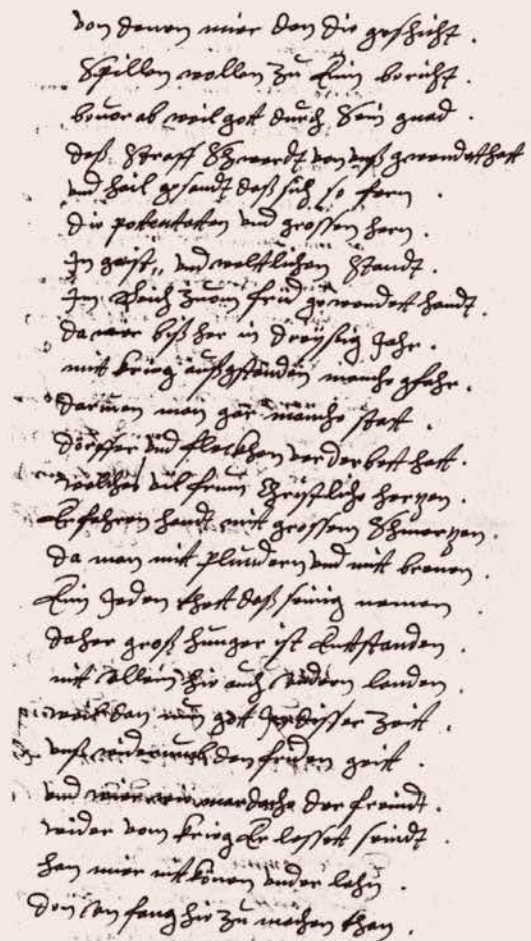 von denen mier den die geschicht .
Spillen wollen zu Einn bericht .
bevor ab weil gott durch Sein gnad .
daß Straff Schwerdt von unß gwendet hatt
und heil gesandt daß sich so fern .
die potentetten und grossen hern .
In geist,, und weltlichen Standt .
Im Reich zuom frid gewendett handt .
da wir biß her in dreyssig Jahr .
mitt krieg außgstanden manche gfahr .
darinen man gar manche statt .
dörffer und fleckhen verderbett hatt .
welches vil frum Christliche hertzen .
Erfahren handt mitt grossem Schmertzen .
da man mitt plundern und mitt brenen .
Einn Jeden thett daß seinig nemen
daher groß hunger ist Enttstanden .
nitt allein hie auch Andern landen .
weil dan nun gott zu disser Zeitt .
unß widerumb den friden geitt .
und mier wie mardache der freindt .
wider vom krieg Erlossett seindt .
han mier nitt könen under lahn .
den an fang hie zu machen than .